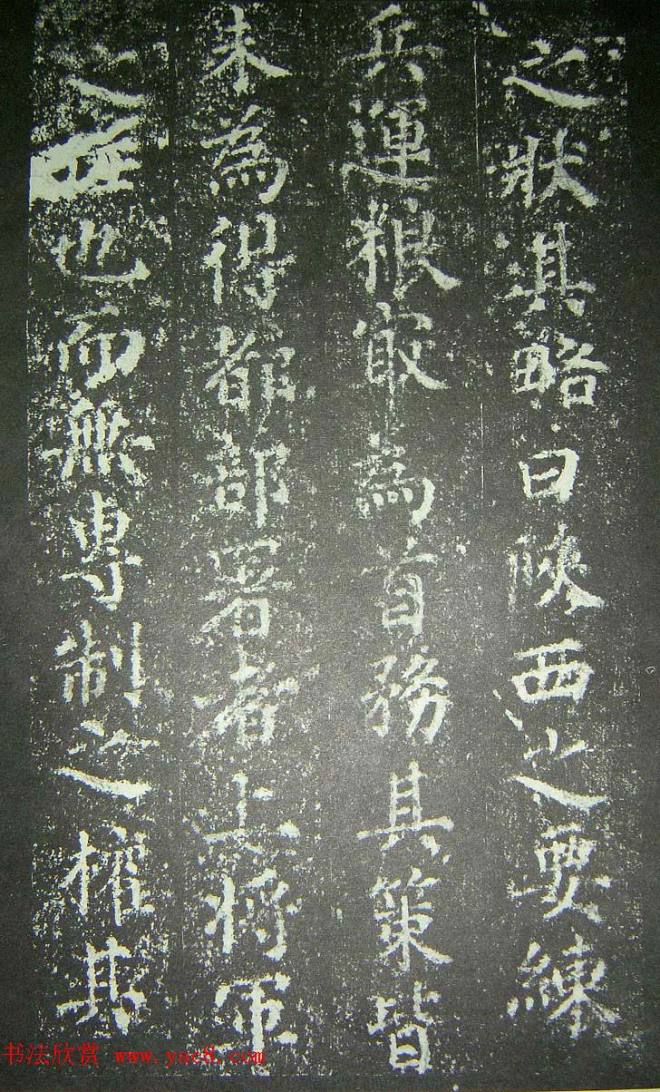 之狀其略曰陝西之要練
兵運粮㝡為首務其策皆
未為得都部署者上將軍
之任也而無專制之權其
书法欣赏 www.yac8.com